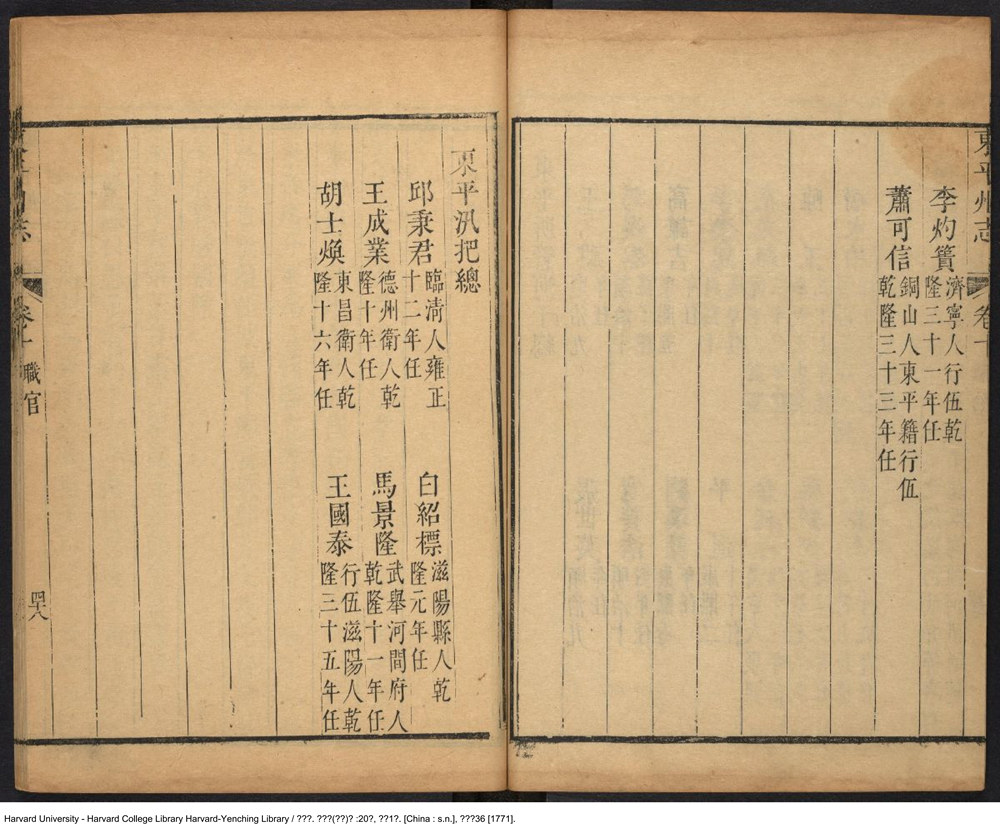 東平州志
卷十
李灼簣 濟寧人行伍乾
隆三十一年任
蕭可信 銅山人東平籍行伍
乾隆三十三年任
東平汛把總
邱秉君 臨清人雍正
十二年任
白紹標 滋陽縣人乾
隆元年任
王成業 德州衛人乾
隆十年任
馬景隆 武舉河間府人
乾隆十一年任
胡士煥 東昌衛人乾
隆十六年任
王國泰 行伍滋陽人乾
隆三十五年任
職官
四十八
Harvard University - Harvard College Library Harvard-Yenching Library / ???. ???(??)? :20?, ??1?. [China : s.n.], ???36 [1771].